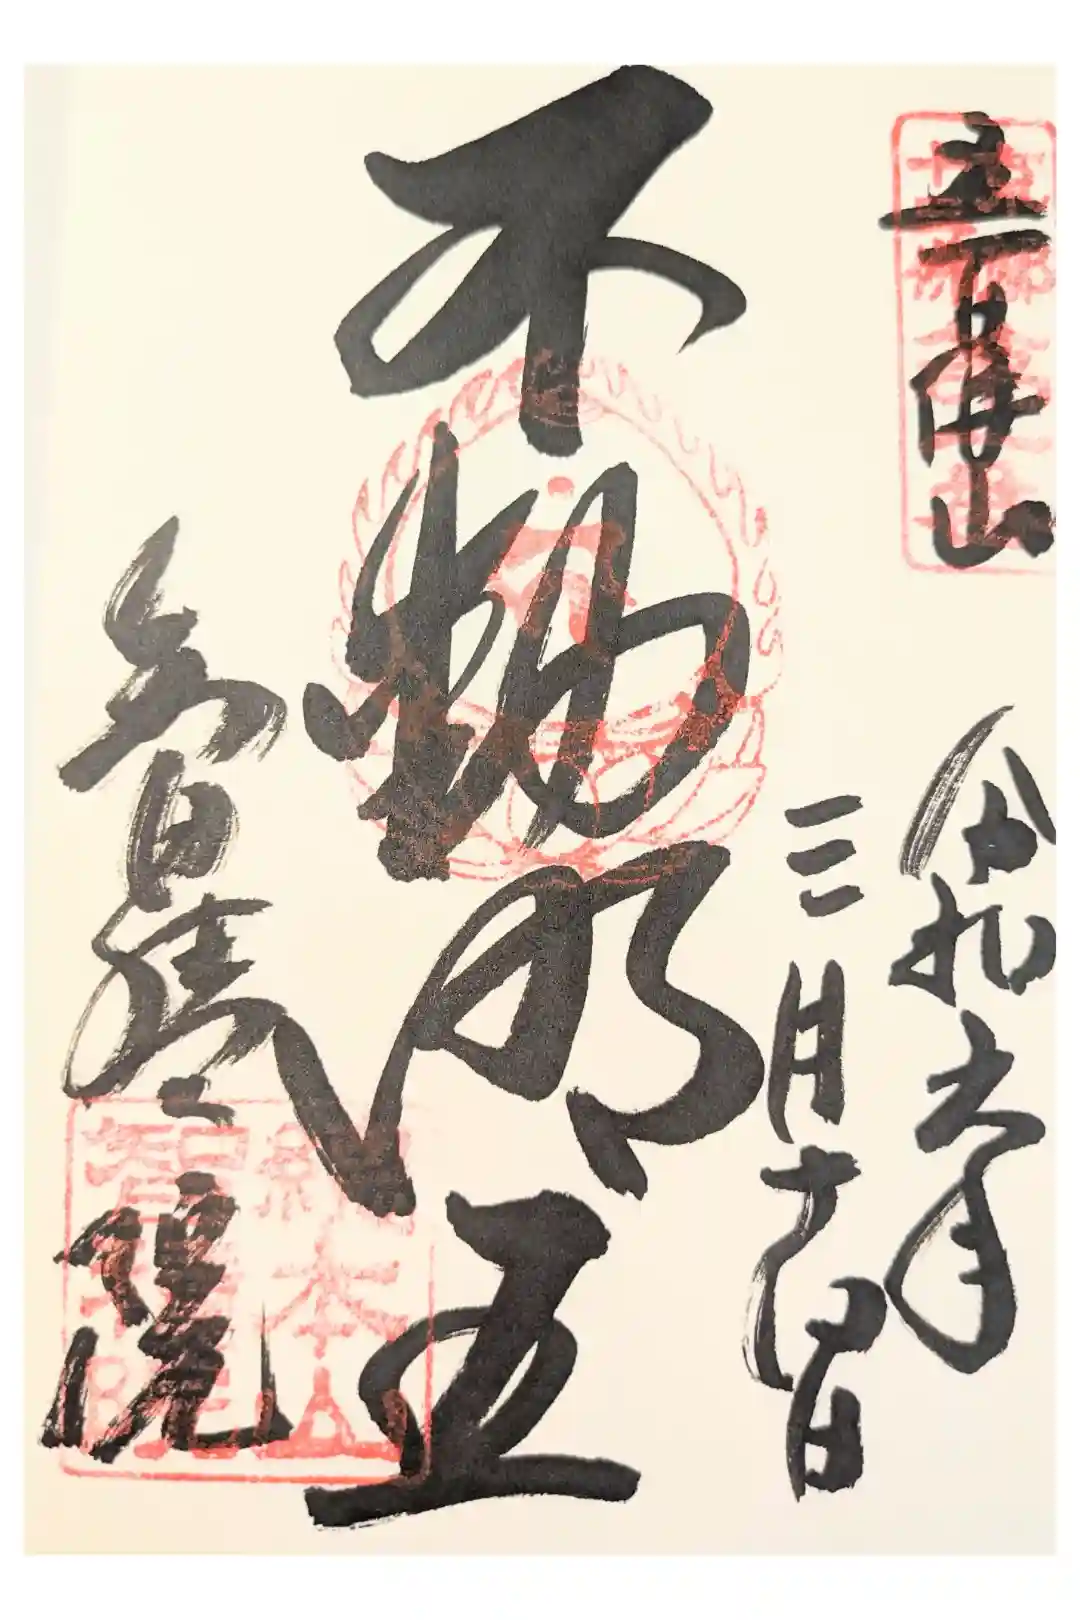 五百佛山
令和六年
三月
不動明王
智積院
総本山
智積院